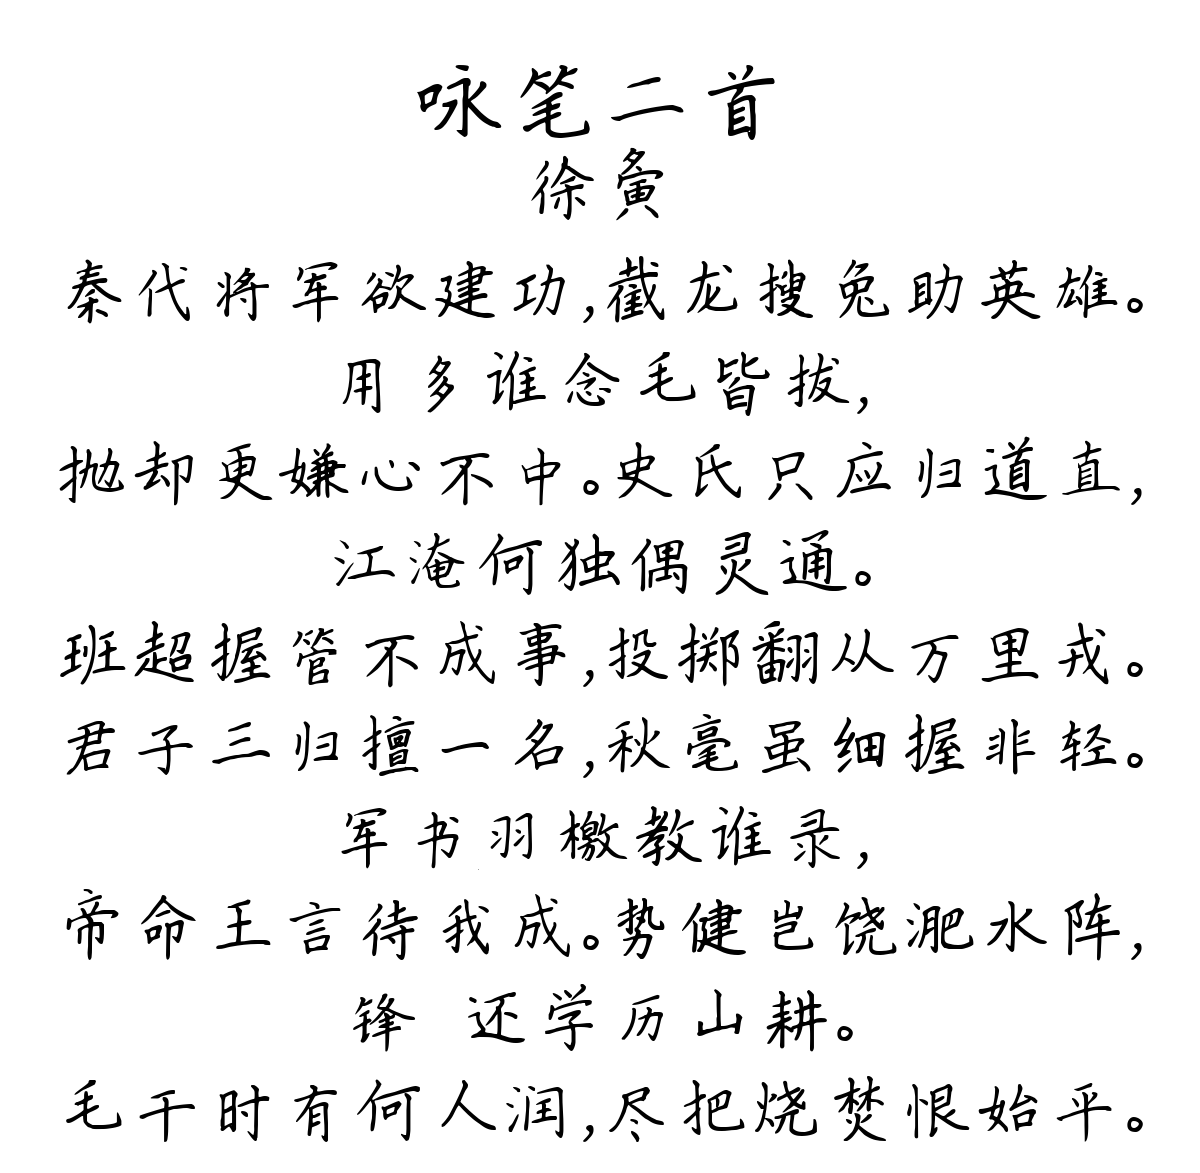 咏笔二首
徐夤
秦代将军欲建功,截龙搜兔助英雄。
用多谁念毛皆拔,
抛却更嫌心不中。史氏只应归道直,
江淹何独偶灵通。
班超握管不成事,投掷翻从万里戎。
君子三归擅一名,秋毫虽细握非轻。
军书羽檄教谁录,
帝命王言待我成。势健岂饶淝水阵,
锋 还学历山耕。
毛干时有何人润,尽把烧焚恨始平。